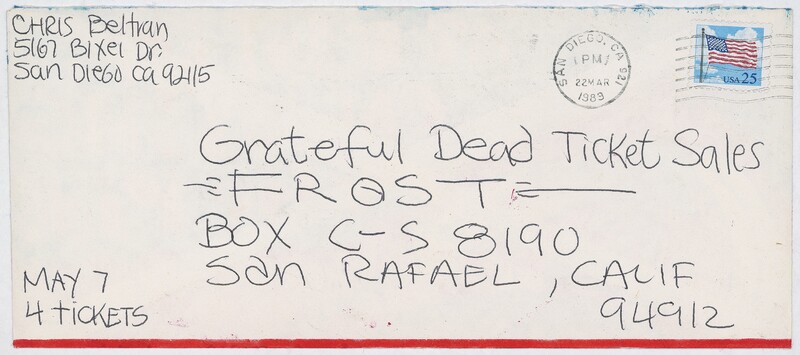 CHRIS Beltran
5167 Bixel Dr.
San Diego Ca 92115
SAN DIEGO, CA 921
PM
22 MAR
1989
USA 25
Grateful Dead Ticket Sales
FROST
BOX C-S 8190
San RAFAEL, CALIF
94912
MAY 7
4 TICKETS